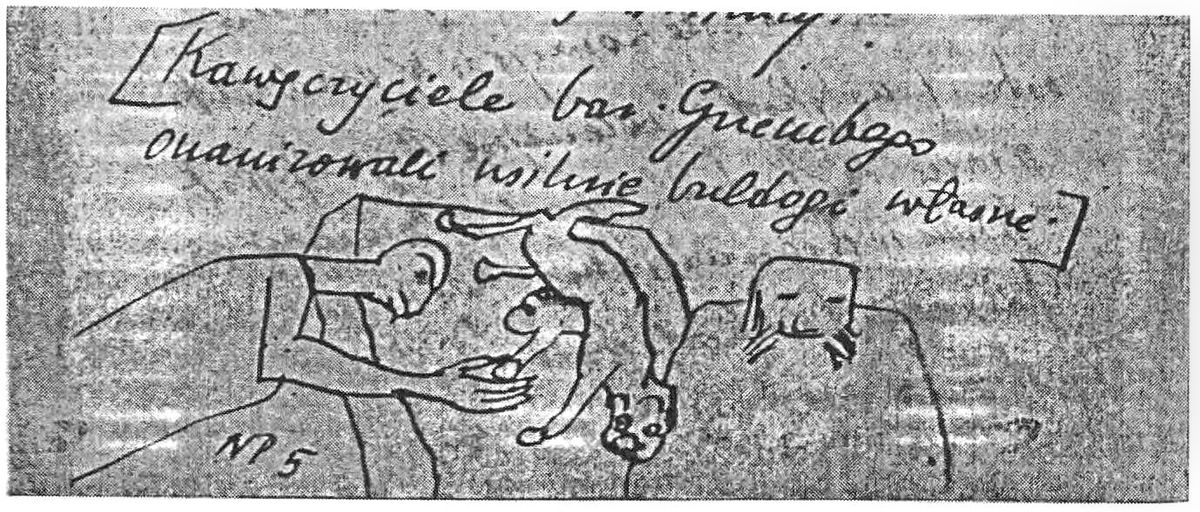 [Kawęczyciele bar.
onanizowali usilnie buldogi własne.]
NP 5